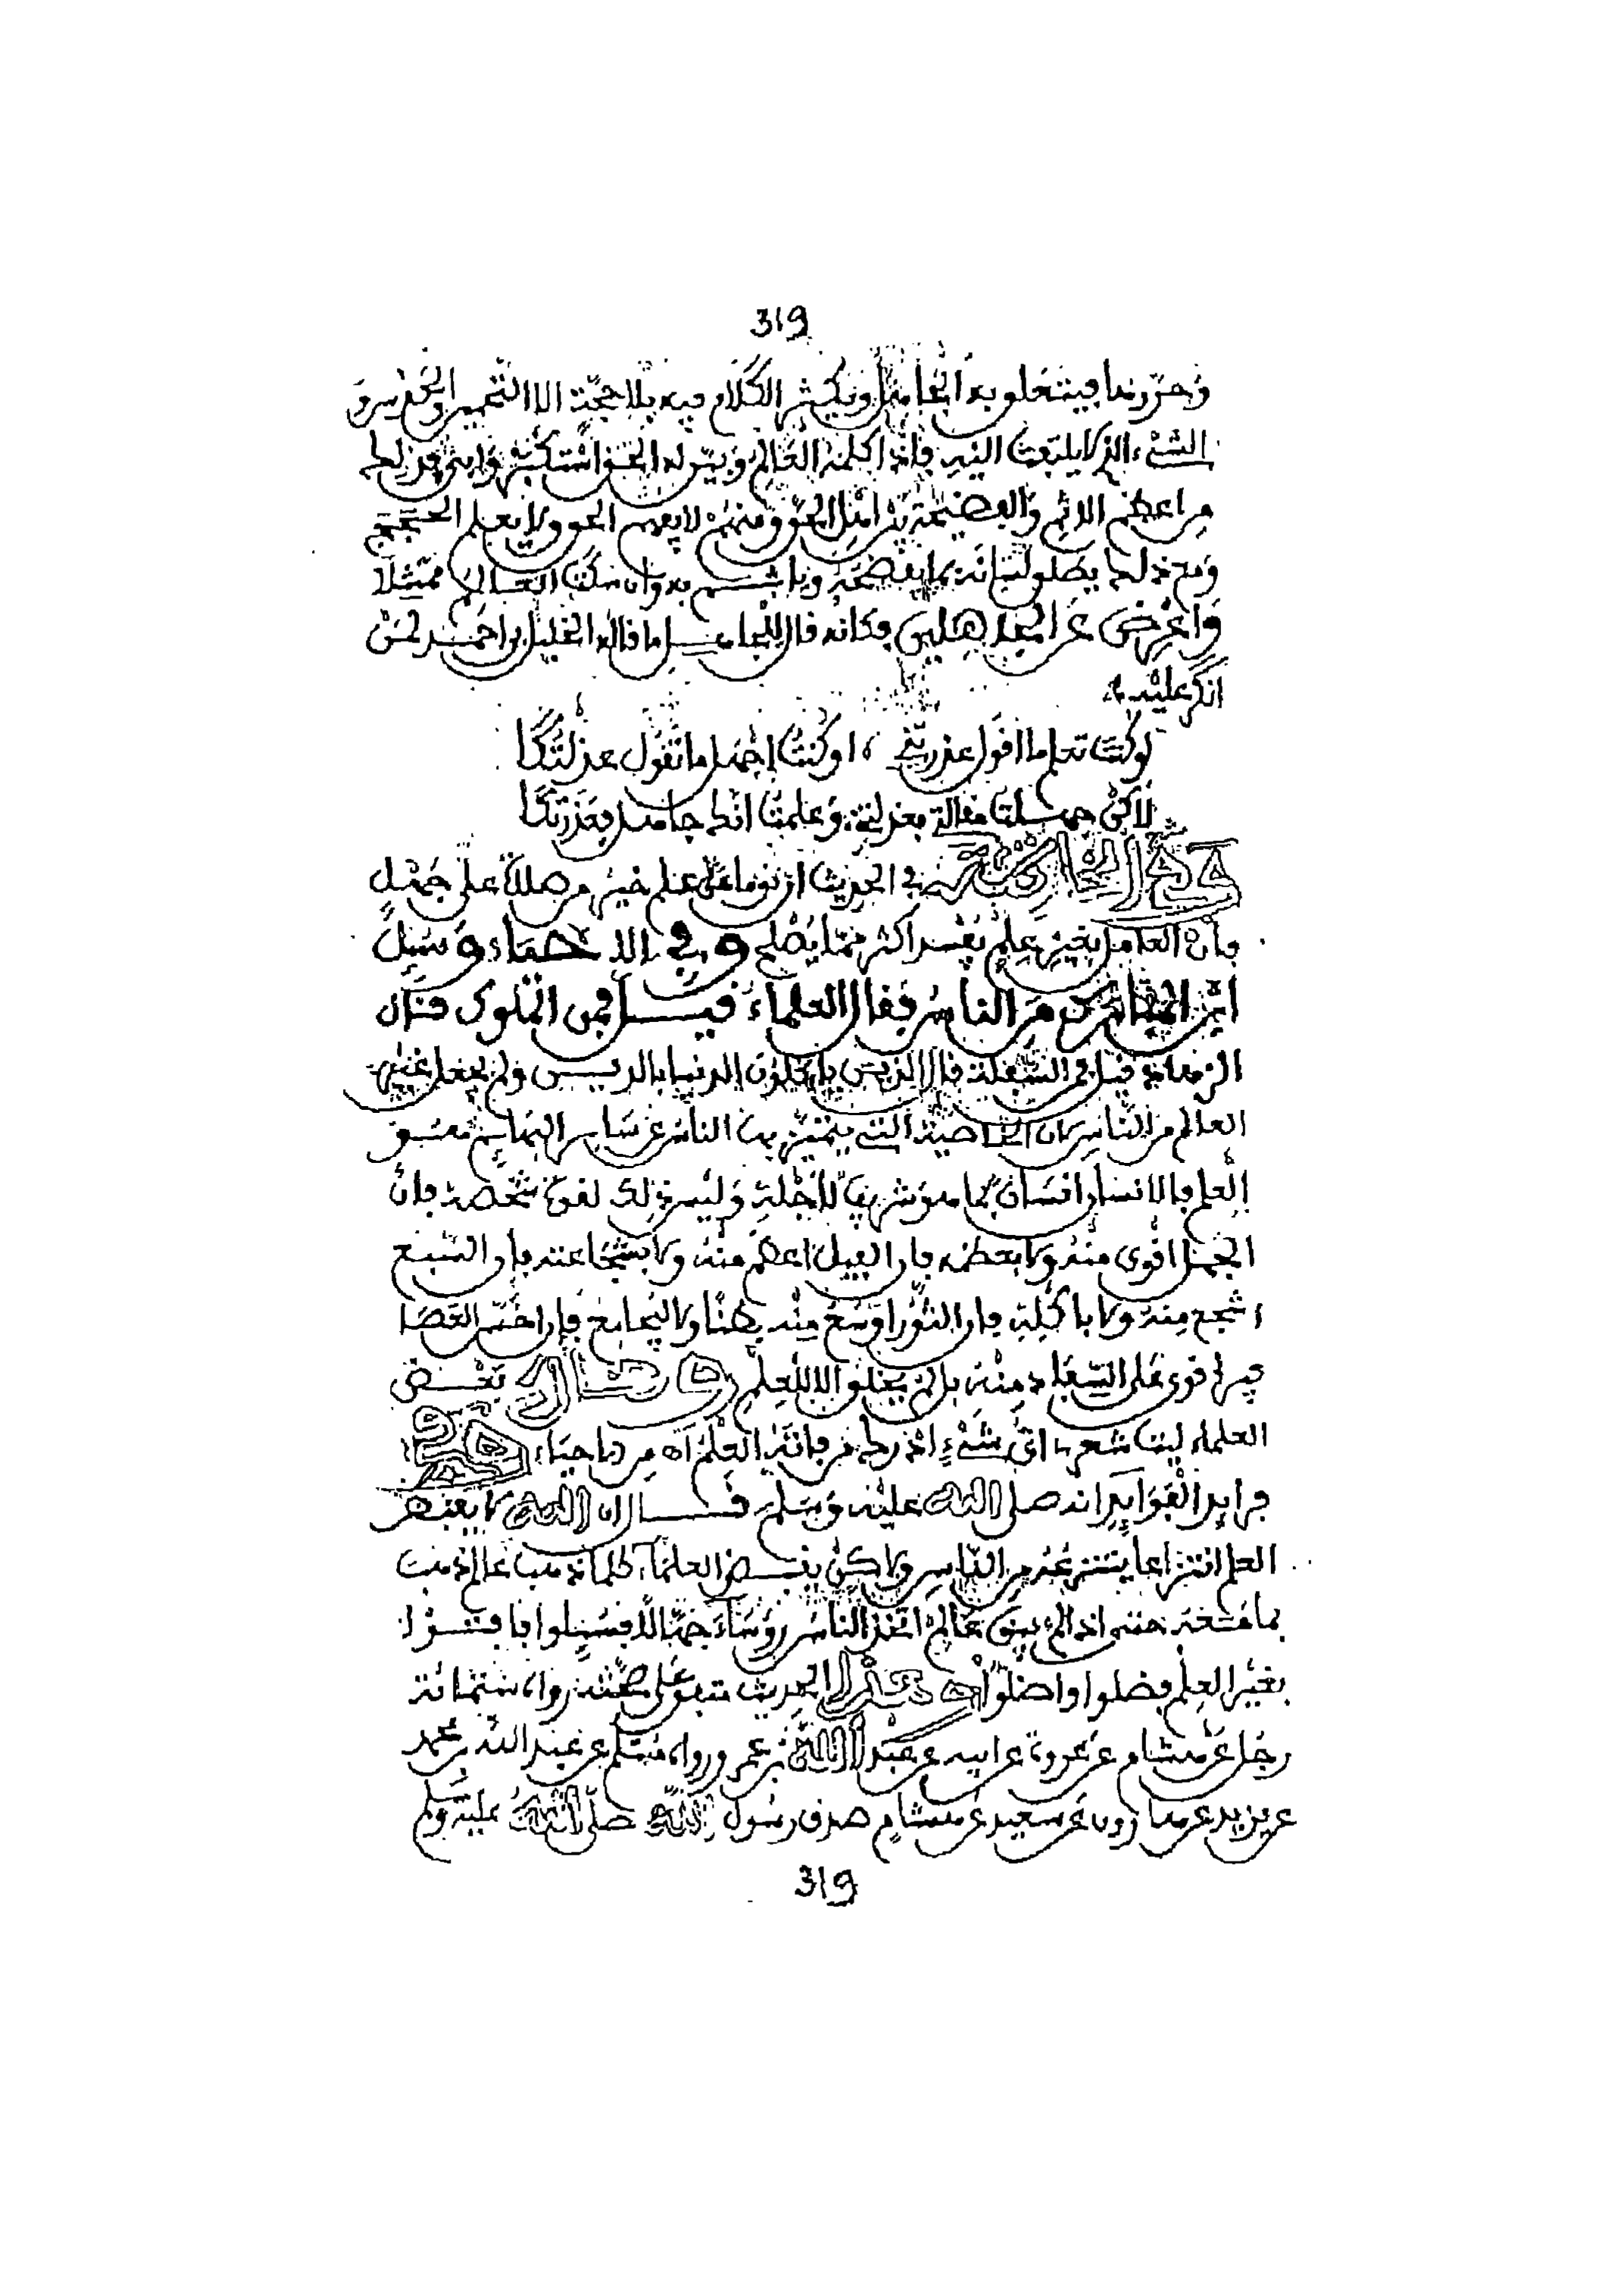 319
وحررنها فيتعلق به الجاهل ويكثر الكلام فيه بلا حجة الا التخمير والخرس و
الشيء الذي لا يلتفت اليه فاذا كلمه العالم وبين له الحق استكبر وابى
من اعظم الاثم والفضيحة بين اهل الحق ومنهم لا يعرف الحق ولا يعلم الحجج
ومع ذلك يطلق لسانه بما يفضحه وان سكت العالم ممتثلا
وأعرض عن الجاهلين فكأنه قال للجاهل ما قاله الخليل بن احمد لمن
انكر عليه
لو كنت تعلم ما اقول عذرتني او كنت اجهل ما تقول عذلتكا
لاكن جهلت مقالتي فعذلتني وعلمت انك جاهل فعذرتكا
في الحديث ان نوما على علم خير من صلاة على جهل
فان العامل بغير علم يفسد اكثر مما يصلح وفي الاحياء وسئل
ابن المبارك من الناس فقال العلماء قيل فمن الملوك قال
الزهاد قيل فمن السفلة قال الذين ياكلون الدنيا بالدين ولم يجعل غير
العالم من الناس لان الخاصية التي يتميز بها الناس عن سائر البهائم هو
العلم فالانسان انسان بما هو شريف لأجله وليس ذلك لقوة شخصه فان
الجمل اقوى منه ولا بعظمه فان الفيل اعظم منه ولا بشجاعته فان السبع
اشجع منه ولا باكله فان الثور اوسع منه بطنا ولا ليجامع فان اخس العصا
فير اقوى على السفاد منه بل لم يخلق الا للعلم وقال بعض
العلماء ليت شعري اي شيء ادرك من فاته العلم اه من الاحياء
فرايد الفوايد انه صلى الله عليه وسلم قال ان الله لا يقبض
العلم انتزاعا ينتزعه من الناس ولاكن بقبض العلماء كلما ذهب عالم ذهب
بما معه حتى اذا لم يبق عالم اتخذ الناس رؤساء جهالا فسئلوا فافتوا
بغير العلم فضلوا واضلوا هذا الحديث متفق على صحته رواه ستمائة
رجل عن هشام عن عروة عن ابيه عن عبد الله بن عمر ورواه مسلم عن عبد الله بن محمد
عن يزيد عن هارون عن سعيد عن هشام صدق رسول الله صلى الله عليه وسلم
319